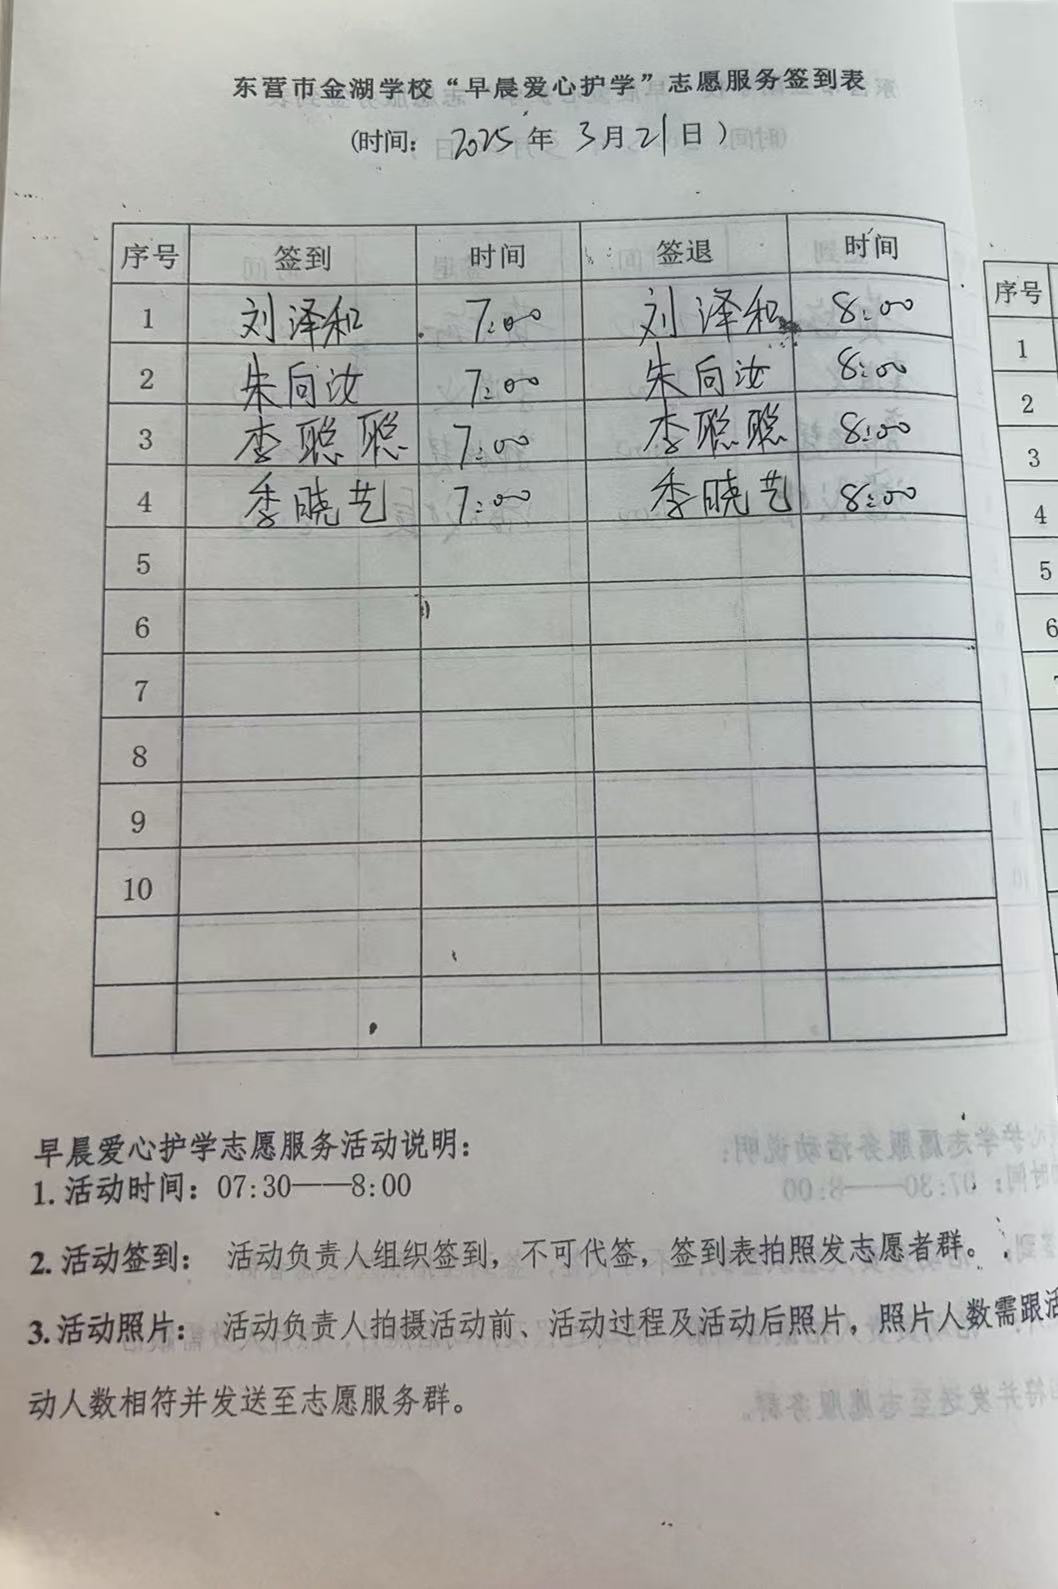 东营市金湖学校“早晨爱心护学”志愿服务签到表
(时间: 2025年 3月21日)
序号 签到 时间 签退 时间
1 刘泽和 7:00 刘泽和 8:00
2 朱向汝 7:00 朱向汝 8:00
3 李聪聪 7:00 李聪聪 8:00
4 季晓艺 7:00 季晓艺 8:00
5
6
7
8
9
10
早晨爱心护学志愿服务活动说明:
1.活动时间: 07:30——8:00
2.活动签到: 活动负责人组织签到, 不可代签, 签到表拍照发志愿者群。
3.活动照片: 活动负责人拍摄活动前、活动过程及活动后照片, 照片人数需跟活
动人数相符并发送至志愿服务群。
序号
1
2
3
4
5
6